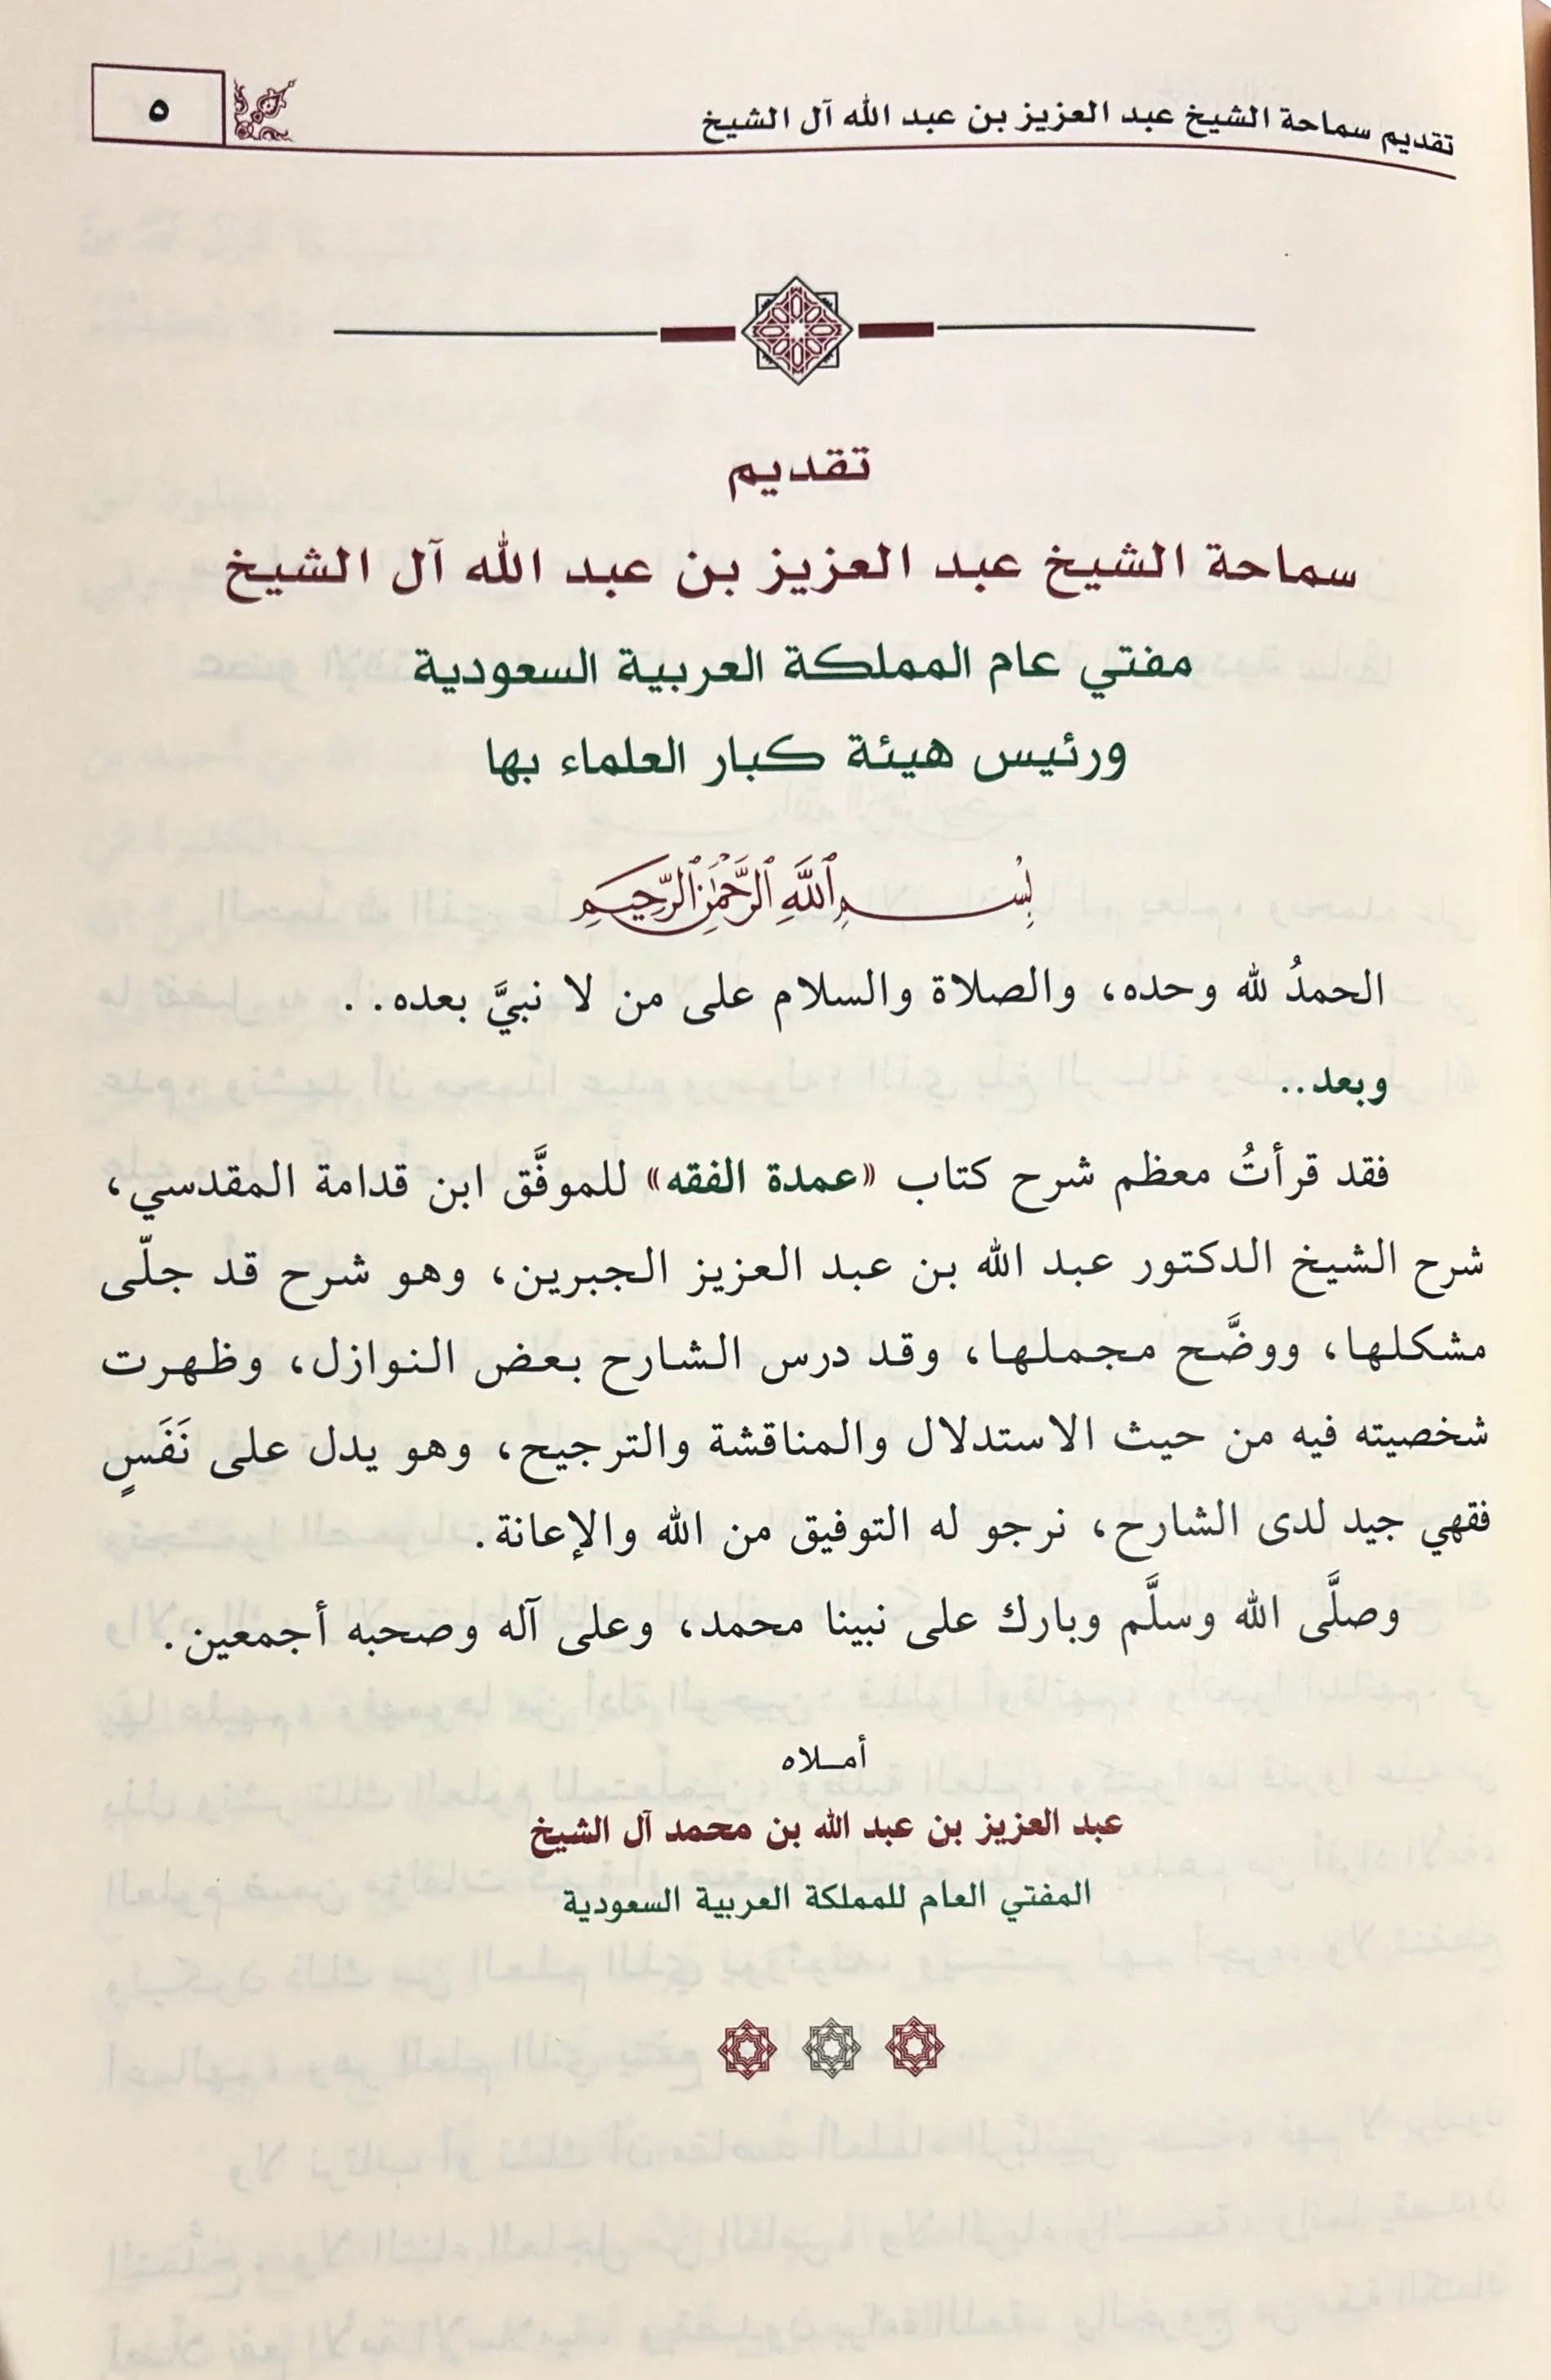 تقديم سماحة الشيخ عبد العزيز بن عبد الله آل الشيخ
٥
تقديم
سماحة الشيخ عبد العزيز بن عبد الله آل الشيخ
مفتي عام المملكة العربية السعودية
ورئيس هيئة كبار العلماء بها
بِسْمِ ٱللَّهِ ٱلرَّحْمَٰنِ ٱلرَّحِيمِ
الحمدُ لله وحده، والصلاة والسلام على من لا نبيَّ بعده. .
وبعد..
فقد قرأتُ معظم شرح كتاب «عمدة الفقه» للموفَّق ابن قدامة المقدسي،
شرح الشيخ الدكتور عبد الله بن عبد العزيز الجبرين، وهو شرح قد جلّى
مشكلها، ووضَّح مجملها، وقد درس الشارح بعض النوازل، وظهرت
شخصيته فيه من حيث الاستدلال والمناقشة والترجيح، وهو يدل على نَفَسٍ
فقهي جيد لدى الشارح، نرجو له التوفيق من الله والإعانة.
وصلَّى الله وسلَّم وبارك على نبينا محمد، وعلى آله وصحبه أجمعين.
أمـلاه
عبد العزيز بن عبد الله بن محمد آل الشيخ
المفتي العام للمملكة العربية السعودية